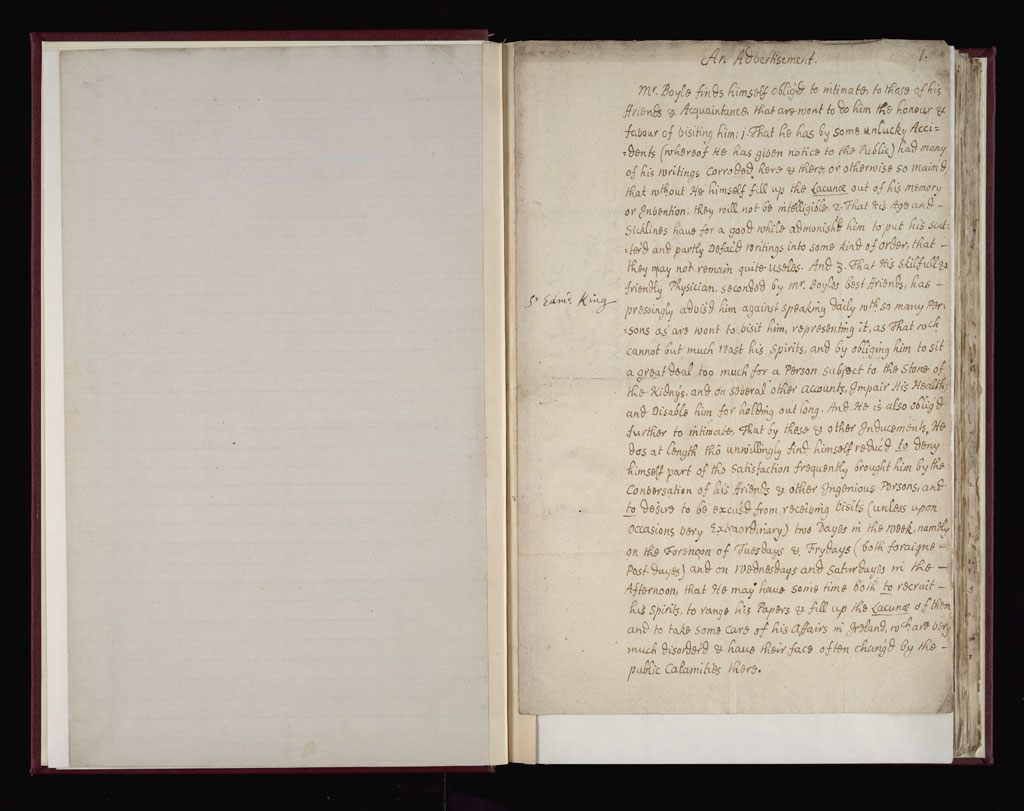 An Advertisement.
1.
Mr. Boyle finds himself oblig'd to intimate to those of his
friends & Acquaintance, that are wont to do him the honour &
favour of visiting him; 1. That he has by some unlucky Acci=
=dents (whereof He has given notice to the Public) had many
of his writings Corroded here & there, or otherwise so maim'd,
that without He himself fill up the Lacunæ out of his memory
or Invention, they will not be intelligible. 2. That His Age and –
Sicklines have for a good while admonish'd him to put his scat=
=ter'd and partly Defac'd writings into some kind of order, that –
they may not remain quite useles. And 3. That His skilfull &
friendly Physician, seconded by Mr. Boyles best friends, has –
Sr Edm: King
pressingly advis'd him against speaking daily wth so many Per=
=sons as are wont to visit him, representing it, as That wch
cannot but much wast his Spirits, and by obliging him to sit
a great deal too much for a Person subject to the Stone of
the Kidnys, and on several other accounts, Impair His Health,
and Disable him for holding out long. And He is also oblig'd
further to intimate, That by these & other Inducements, He
dos at length tho unwillingly find himself reduc'd to deny
himself part of the Satisfaction frequently brought him by the
Conversation of his friends & other Ingenious Persons, and
to desire to be excus'd from receiving Visits (unless upon
occasions very Extraordinary) two Dayes in the week, namely
on the Forenoon of Tuesdays & Frydays (both foraigne –
Post-dayes) and on Wednesdays and Saturdayes in the –
Afternoon, that He may have some time both to recruit –
his Spirits, to range his Papers & fill up the Lacunæ of them
and to take some care of his Affairs in Ireland, wch are very
much disorder'd & have their face often chang'd by the –
public Calamities there.